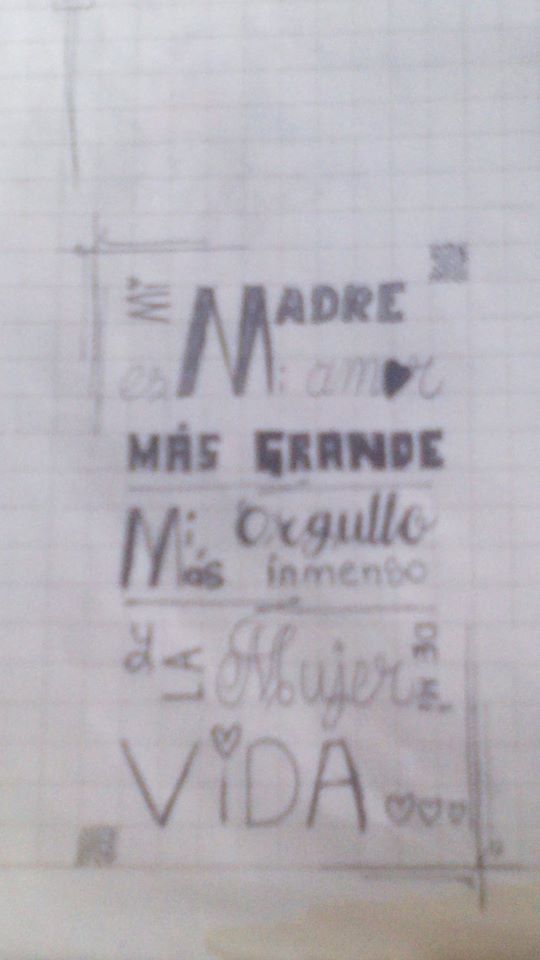 Mi MADRE
es Mi amor
MÁS GRANDE
Mi Orgullo
Más inmenso
Y LA Mujer DE MI
ViDA